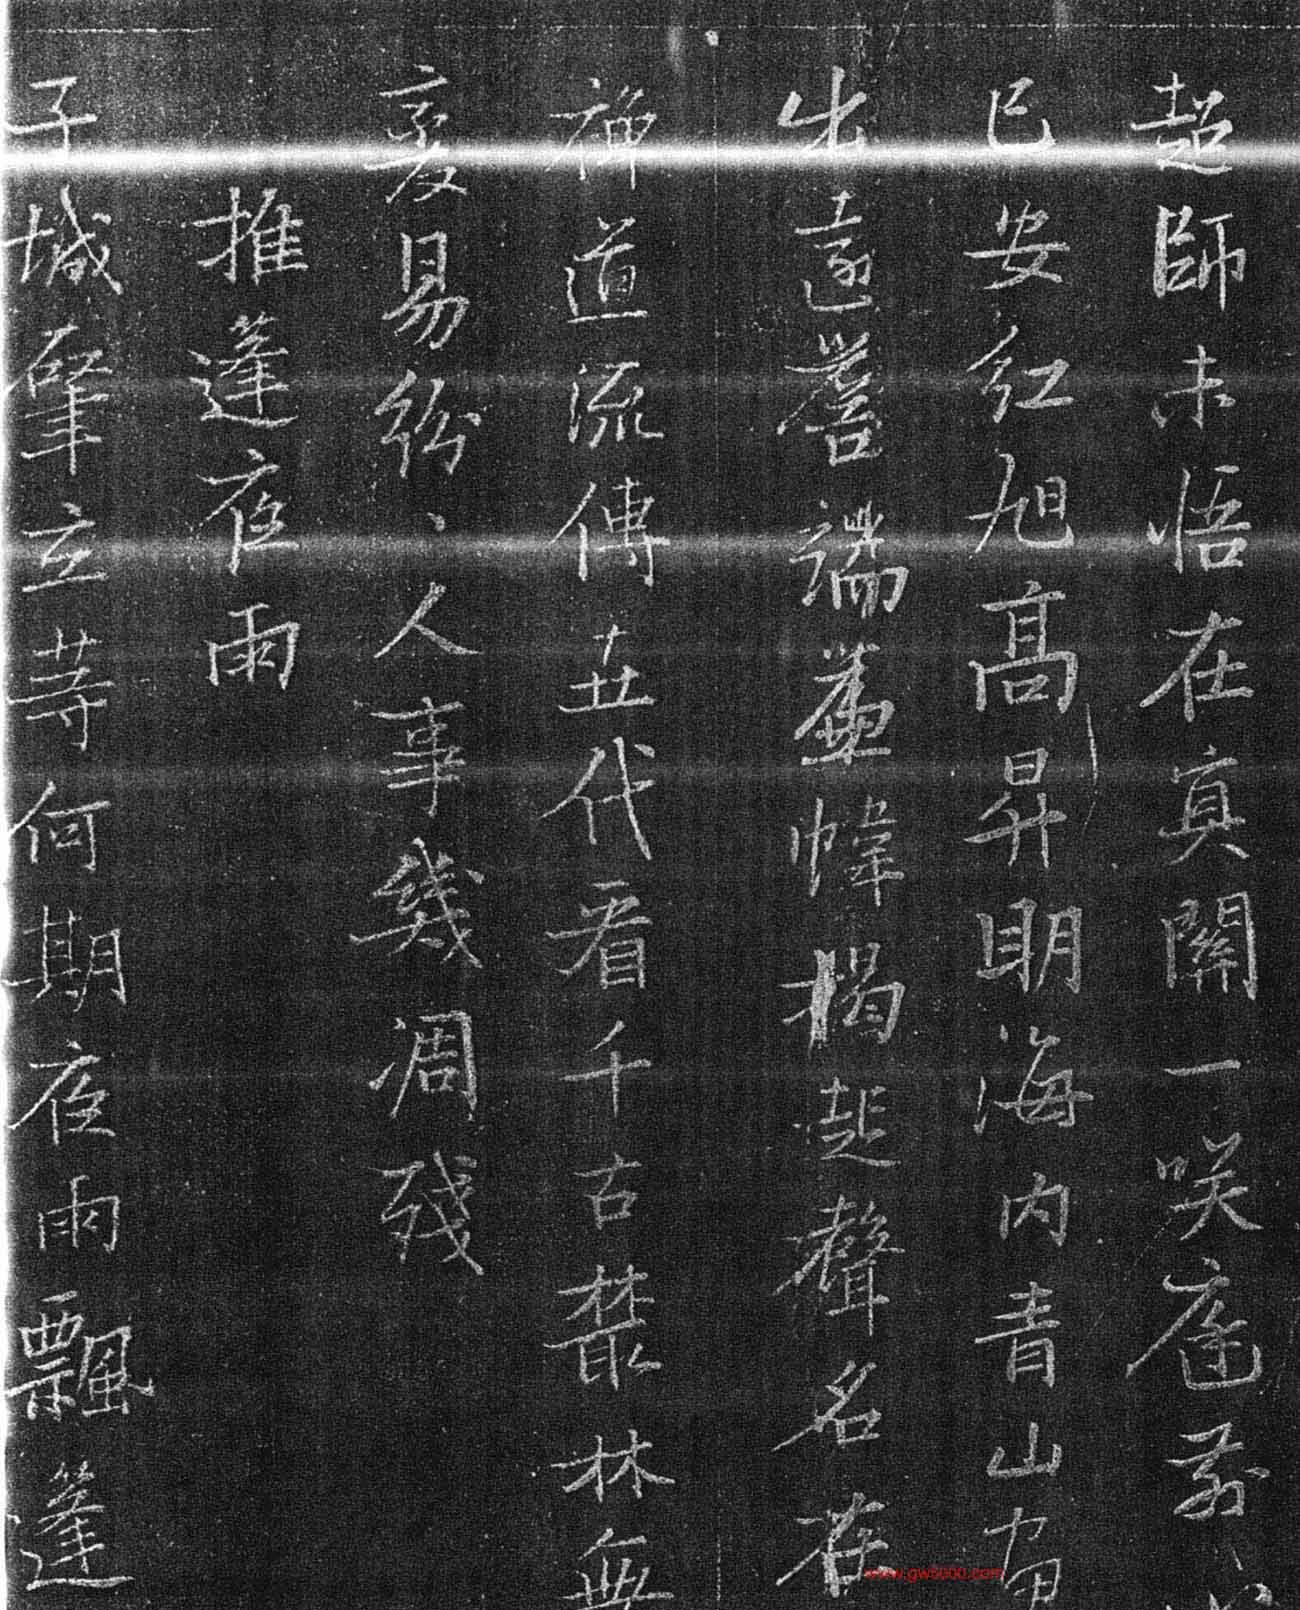 超師未悟在真關一咲庭前
已安紅旭高昇眀海內青山畱
出遠誉端蓆幃揭起聲名在
禅道流傳丗代看千古叢林無
変易紛〻人事幾凋殘
推蓬夜雨
子城肇立等何期夜雨飄篷
www.gw5000.com